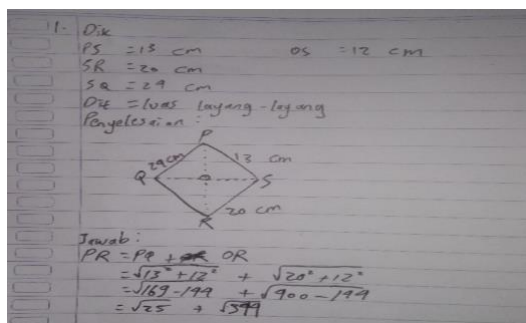 1. Dik
PS = 13 cm OS = 12 cm
SR = 20 cm
SQ = 29 cm
Dit = luas layang-layang
Penyelesaian :
P
29cm 13 cm
Q O S
20 cm
R
Jawab :
PR = PQ + OR
= √13² + 12² + √20² + 12²
= √169 - 144 + √400 - 144
= √25 +